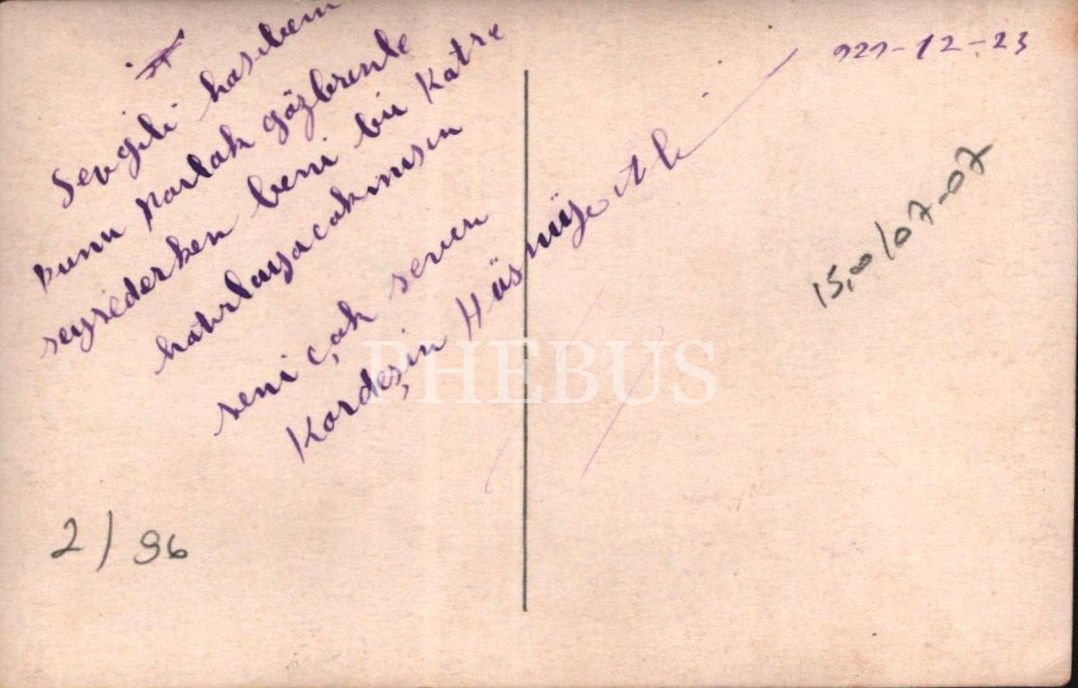 Sevgili hasibem
bunu parlak gözlerenle
seyrederken beni bir katre
hatırlayacakmısın
seni çok seven
Kardeşin Hüsnüye Ali
929-12-23
15,00/07-07
2/96
PHEBUS